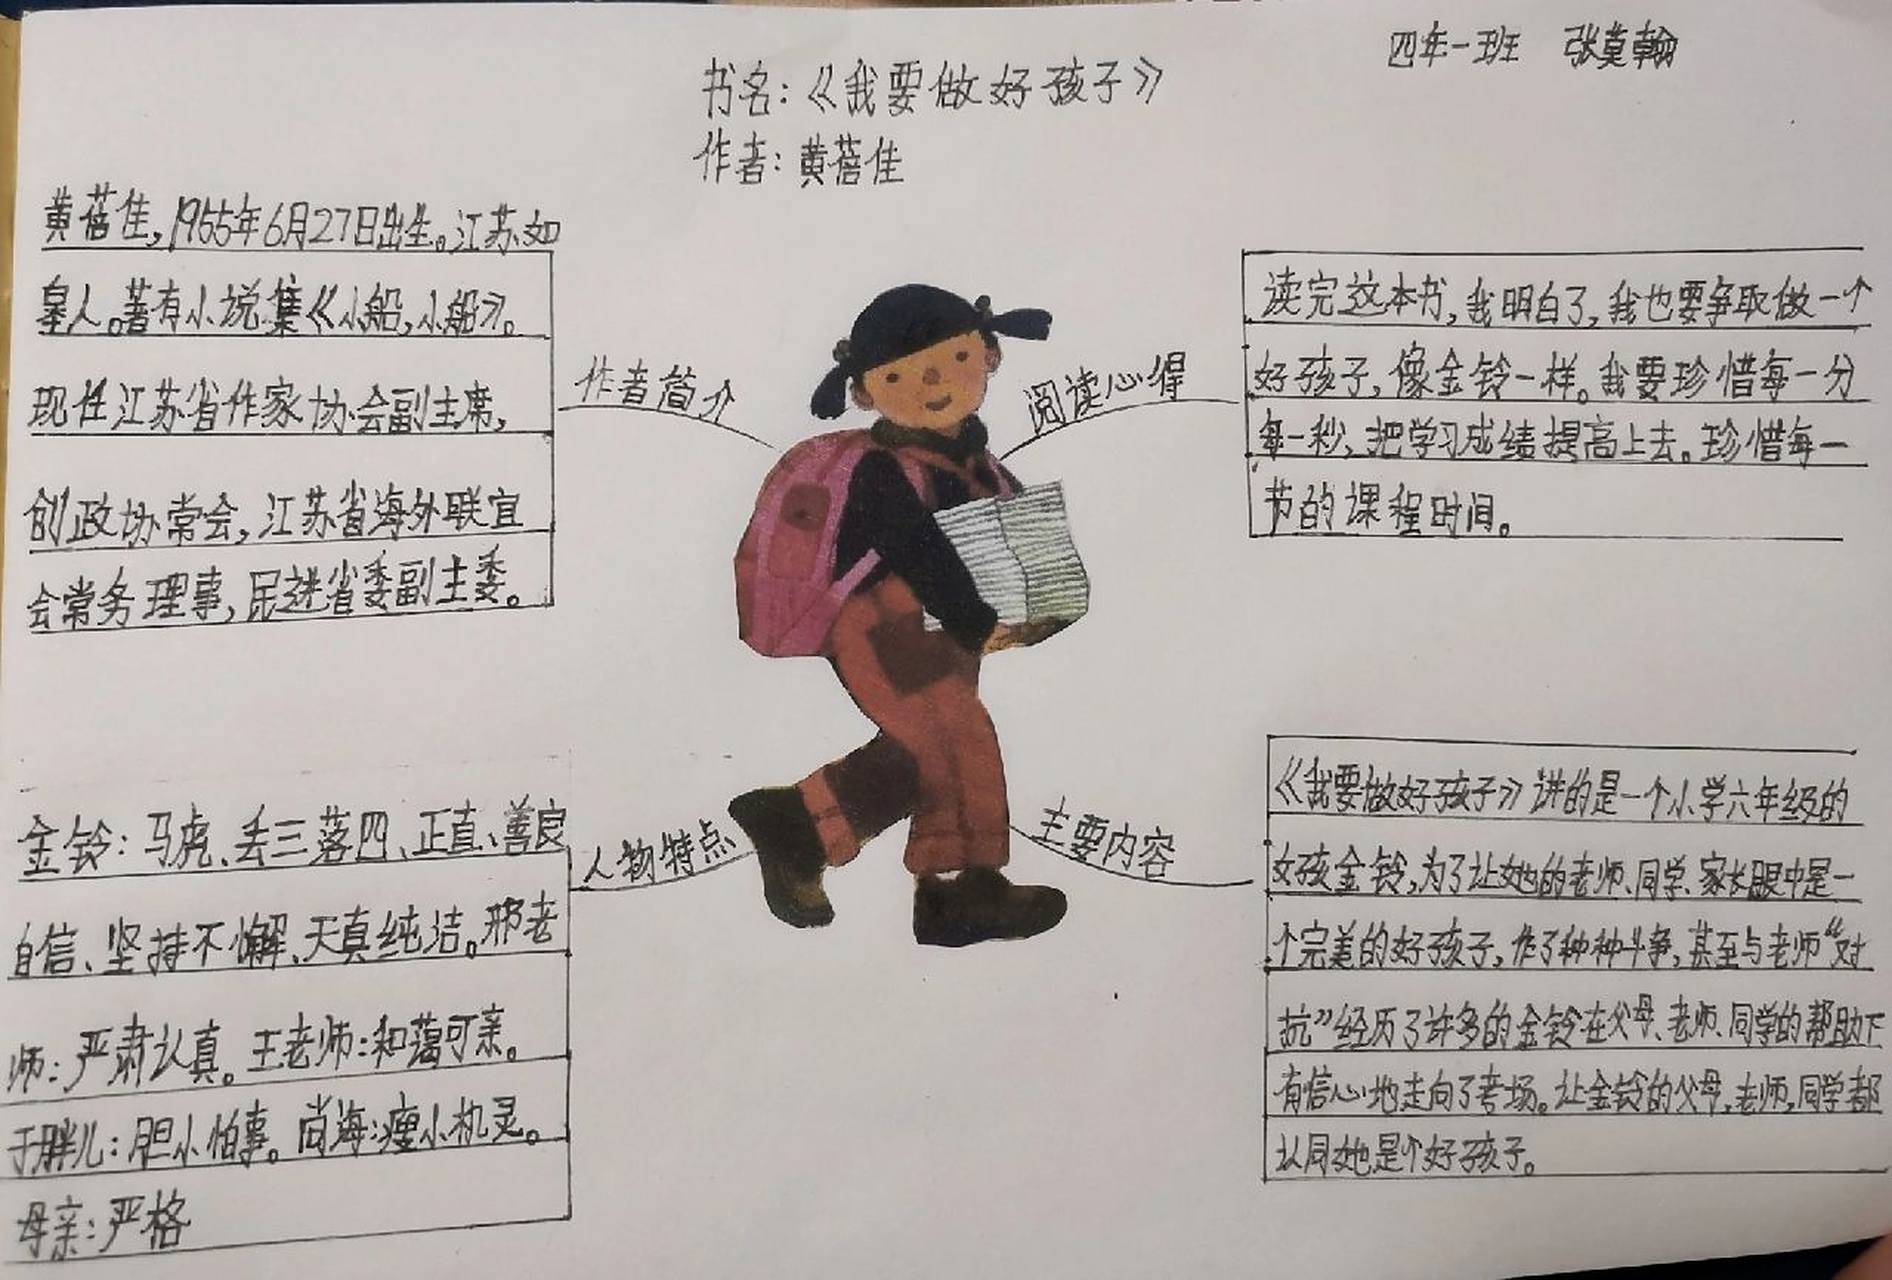 四年一班 张莫翰
书名:《我要做好孩子》
作者:黄蓓佳
黄蓓佳,1955年6月27日出生。江苏如
皋人。著有小说集《小船,小船》。
现任江苏省作家协会副主席,
创政协常会,江苏省海外联宜
会常务理事,民进省委副主委。
作者简介
阅读心得
读完这本书,我明白了,我也要争取做一个
好孩子,像金铃一样。我要珍惜每一分
每一秒,把学习成绩提高上去。珍惜每一
节的课程时间。
金铃:马虎、丢三落四、正直、善良
自信、坚持不懈、天真纯洁。邢老
师:严肃认真。王老师:和蔼可亲。
于胖儿:胆小怕事。尚海:瘦小机灵。
母亲:严格
人物特点
主要内容
《我要做好孩子》讲的是一个小学六年级的
女孩金铃,为了让她的老师、同学、家长眼中是一
个完美的好孩子,作了种种斗争,甚至与老师“对
抗”经历了许多的金铃在父母、老师、同学的帮助下
有信心地走向了考场。让金铃的父母,老师,同学都
认同她是个好孩子。